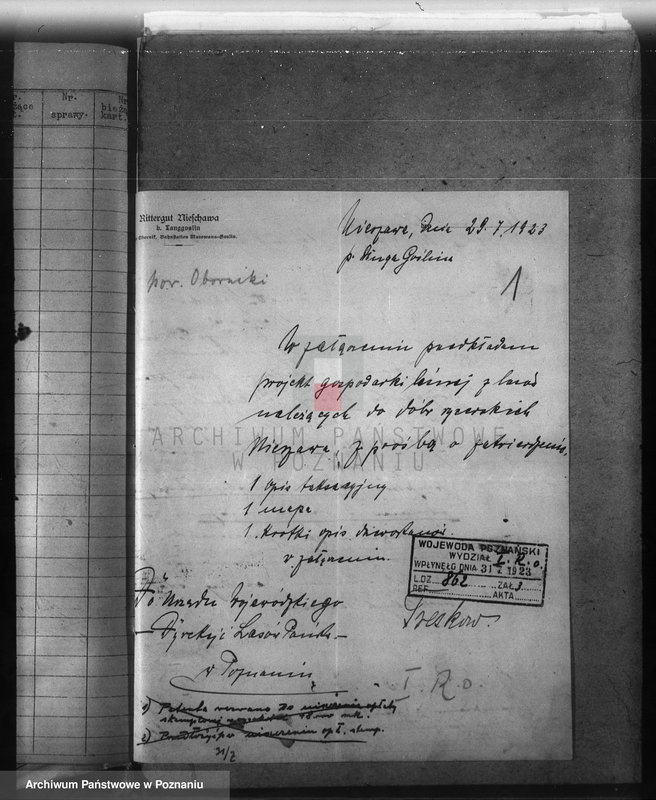 Nr.
sprawy.
Nr.
kart.
Rittergut Nieschawa
b. Langgoslin
Obornik, Bahnstation Murowana-Goslin.
Nieszawa, dnia 29.7.1923
p. Długa Goślina
pow. Oborniki
1
W załączeniu przedkładam
projekt gospodarki leśnej z lasów
należących do dóbr rycerskich
Nieszawa, z prośbą o zatwierdzenie.
1 Opis taksacyjny
1 mapa
1 Krótki opis
w załączeniu.
WOJEWODA POZNAŃSKI
WYDZIAŁ I. R. o.
WPŁYNĘŁO DNIA 31 7 1923
L.DZ. 862 ZAŁ. 3
REF. AKTA
Treskow.
Do Urzędu Wojewódzkiego
Dyrekcji Lasów Państw.
w Poznaniu
I R o.
1)
2)
31/7
ARCHIWUM PAŃSTWOWE
W POZNANIU
Archiwum Państwowe w Poznaniu